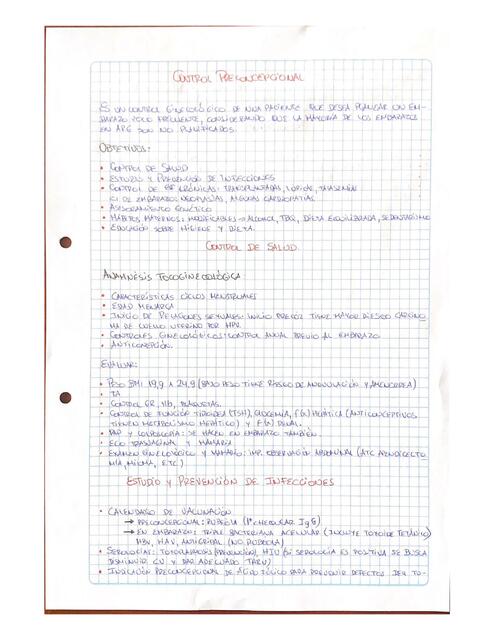 CONTROL PRECONCEPCIONAL
ES UN CONTROL GINECOLÓGICO DE UNA PACIENTE QUE DESEA PLANEAR UN EM-
BARAZO POCO FRECUENTE, CONSIDERANDO QUE LA MAYORÍA DE LOS EMBARAZOS
EN ARG SON NO PLANIFICADOS.
OBJETIVOS:
• CONTROL DE SALUD
• ESTUDIO Y PREVENCIÓN DE INFECCIONES
• CONTROL DE CRÓNICAS: TRANSPLANTADAS, LÚPICAS, TALASEMIAS
CI DE EMBARAZO: NEOPLASIAS, ALGUNAS CARDIOPATÍAS
• ASESORAMIENTO GENÉTICO
• HÁBITOS MATERNOS: MODIFICABLES → ALCOHOL, TBQ, DIETA EQUILIBRADA, SEDENTARISMO
• EDUCACIÓN SOBRE HIGIENE Y DIETA.
CONTROL DE SALUD
ANAMNESIS TOCOGINECOLÓGICA
• CARACTERÍSTICAS CICLOS MENSTRUALES
• EDAD MENARCA
• INICIO DE RELACIONES SEXUALES: INICIO PRECOZ TIENE MAYOR RIESGO CARCINO
MA DE CUELLO UTERINO POR HPV.
• CONTROLES GINECOLÓGICOS: CONTROL ANUAL PREVIO AL EMBARAZO
• ANTICONCEPCIÓN.
EVALUAR:
• PESO BMI 19,9 A 24,9 (BAJO PESO TIENE RIESGO DE ANOVULACIÓN Y AMENORREA)
• TA
• CONTROL GR, Hb, PLAQUETAS.
• CONTROL DE FUNCIÓN TIROIDEA (TSH), GLUCEMIA, F(x) HEPÁTICA (ANTICONCEPTIVOS
TIENEN METABOLISMO HEPÁTICO) Y F(x) RENAL.
• PAP Y COLPOSCOPIA: SE HACEN EN EMBARAZO TAMBIÉN.
• ECO TRASVAGINAL Y MAMARIA
• EXAMEN GINECOLÓGICO Y MAMARIO: IMP. OBSERVACIÓN ABDOMINAL (ATC APENDICECTO
MÍA, MIOMA, ETC)
ESTUDIO Y PREVENCIÓN DE INFECCIONES
• CALENDARIO DE VACUNACIÓN
→ PRECONCEPCIONAL: RUBEOLA (1° CHEQUEAR IgG)
→ EN EMBARAZO: TRIPLE BACTERIANA ACELULAR (INCLUYE TOXOIDE TETÁNICO)
HBV, HAV, ANTIGRIPAL (NO RUBEOLA)
• SEROLOGÍAS: TOXOPLASMOSIS (PREVENCIÓN), HIV (SI SEROLOGÍA ES POSITIVA SE BUSCA
DISMINUIR CV Y DAR ADECUADO TARV)
• INDICACIÓN PRECONCEPCIONAL DE ÁCIDO FÓLICO PARA PREVENIR DEFECTOS DEL TU-